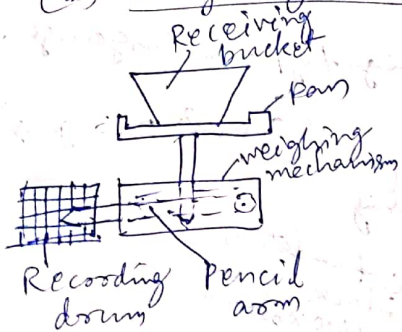 Receiving
bucket
pan
weighing
mechanism
Recording
drum
Pencil
arm